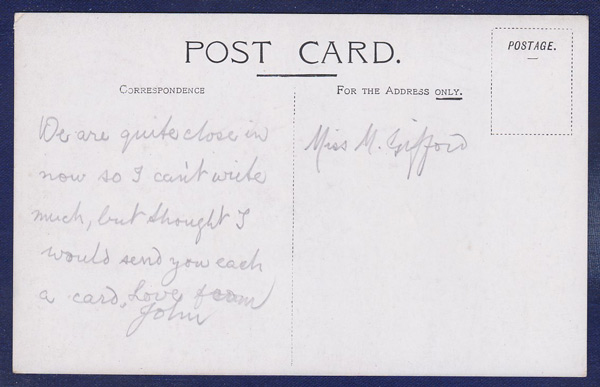 POST CARD.
POSTAGE.
CORRESPONDENCE
FOR THE ADDRESS ONLY.
We are quite close in
now so I can't write
much, but thought I
would send you each
a card, Love from
John
Miss M. Gifford